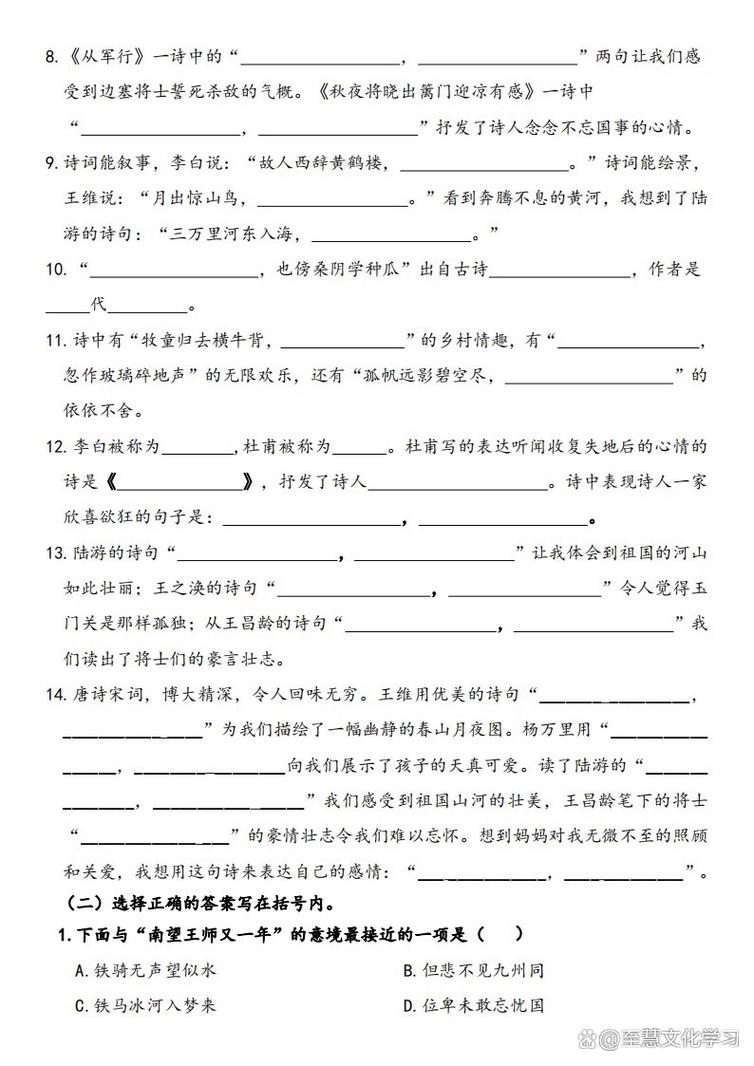 8.《从军行》一诗中的“________________，________________”两句让我们感
受到边塞将士誓死杀敌的气概。《秋夜将晓出篱门迎凉有感》一诗中
“________________，________________”抒发了诗人念念不忘国事的心情。
9.诗词能叙事，李白说：“故人西辞黄鹤楼，________________。”诗词能绘景，
王维说：“月出惊山鸟，________________。”看到奔腾不息的黄河，我想到了陆
游的诗句：“三万里河东入海，________________。”
10.“________________，也傍桑阴学种瓜”出自古诗______________，作者是
____代________。
11.诗中有“牧童归去横牛背，____________”的乡村情趣，有“______________，
忽作玻璃碎地声”的无限欢乐，还有“孤帆远影碧空尽，________________”的
依依不舍。
12.李白被称为_______,杜甫被称为_____。杜甫写的表达听闻收复失地后的心情的
诗是《____________》，抒发了诗人__________________。诗中表现诗人一家
欣喜欲狂的句子是：__________________，________________。
13.陆游的诗句“________________，________________”让我体会到祖国的河山
如此壮丽；王之涣的诗句“________________，________________”令人觉得玉
门关是那样孤独；从王昌龄的诗句“________________，________________”我
们读出了将士们的豪言壮志。
14.唐诗宋词，博大精深，令人回味无穷。王维用优美的诗句“________________，
________________”为我们描绘了一幅幽静的春山月夜图。杨万里用“__________
______，________________向我们展示了孩子的天真可爱。读了陆游的“______
________，________________”我们感受到祖国山河的壮美，王昌龄笔下的将士
“________________”的豪情壮志令我们难以忘怀。想到妈妈对我无微不至的照顾
和关爱，我想用这句诗来表达自己的感情：“______________，_____________”。
（二）选择正确的答案写在括号内。
1.下面与“南望王师又一年”的意境最接近的一项是（　　）
A.铁骑无声望似水 B.但悲不见九州同
C.铁马冰河入梦来 D.位卑未敢忘忧国
@至慧文化学习